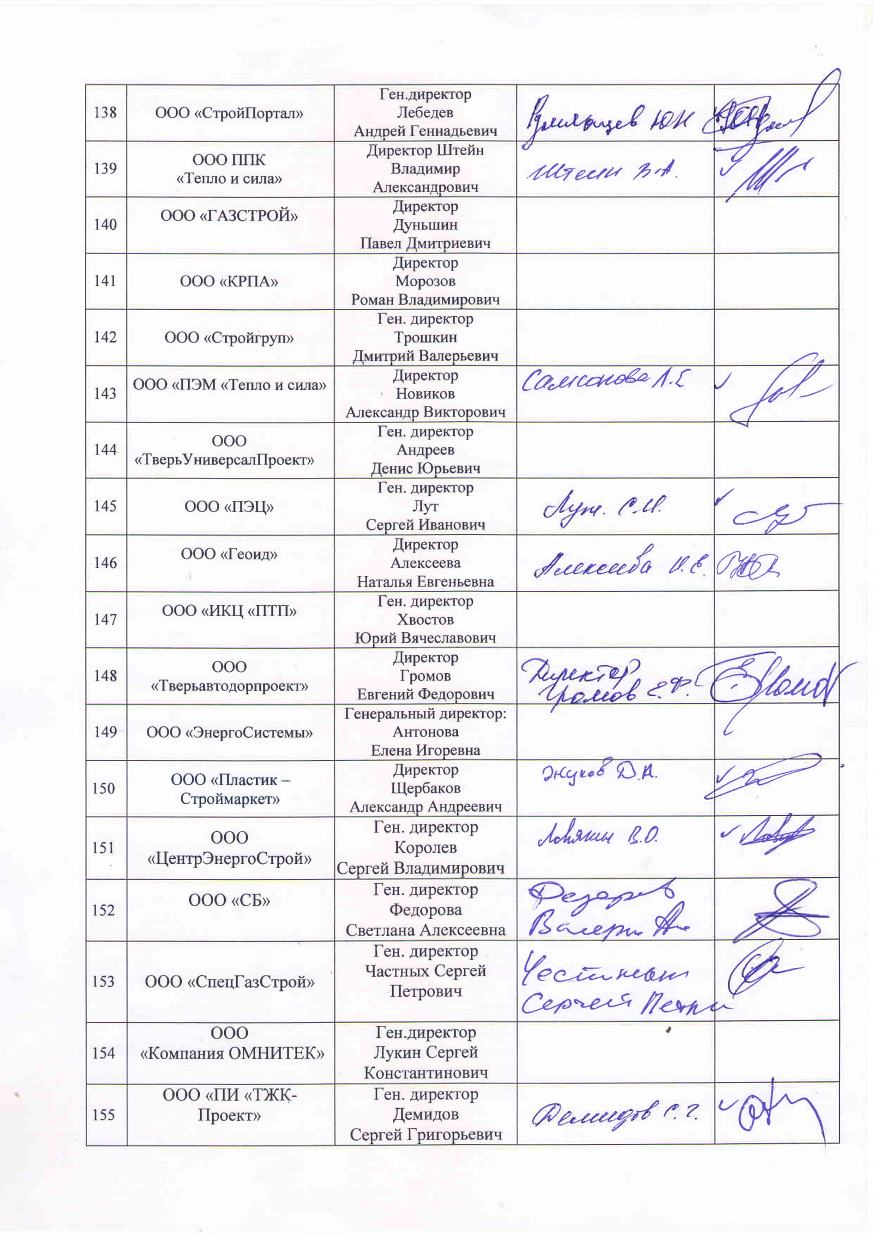 138
ООО «СтройПортал»
Ген.директор
Лебедев
Андрей Геннадьевич
Ю Н
139
ООО ППК
«Тепло и сила»
Директор Штейн
Владимир
Александрович
Штейн В.А.
140
ООО «ГАЗСТРОЙ»
Директор
Дуньшин
Павел Дмитриевич
141
ООО «КРПА»
Директор
Морозов
Роман Владимирович
142
ООО «Стройгруп»
Ген. директор
Трошкин
Дмитрий Валерьевич
143
ООО «ПЭМ «Тепло и сила»
Директор
Новиков
Александр Викторович
Самсонова Л.Е
144
ООО
«ТверьУниверсалПроект»
Ген. директор
Андреев
Денис Юрьевич
145
ООО «ПЭЦ»
Ген. директор
Лут
Сергей Иванович
Лут. С.И.
146
ООО «Геоид»
Директор
Алексеева
Наталья Евгеньевна
Алексеева Н.Е.
147
ООО «ИКЦ «ПТП»
Ген. директор
Хвостов
Юрий Вячеславович
148
ООО
«Тверьавтодорпроект»
Директор
Громов
Евгений Федорович
Директор
Громов Е.Ф.
149
ООО «ЭнергоСистемы»
Генеральный директор:
Антонова
Елена Игоревна
150
ООО «Пластик –
Строймаркет»
Директор
Щербаков
Александр Андреевич
Жуков Д.А.
151
ООО
«ЦентрЭнергоСтрой»
Ген. директор
Королев
Сергей Владимирович
В.О.
152
ООО «СБ»
Ген. директор
Федорова
Светлана Алексеевна
153
ООО «СпецГазСтрой»
Ген. директор
Частных Сергей
Петрович
Сергей
154
ООО
«Компания ОМНИТЕК»
Ген.директор
Лукин Сергей
Константинович
155
ООО «ПИ «ТЖК-
Проект»
Ген. директор
Демидов
Сергей Григорьевич
Демидов С.Г.